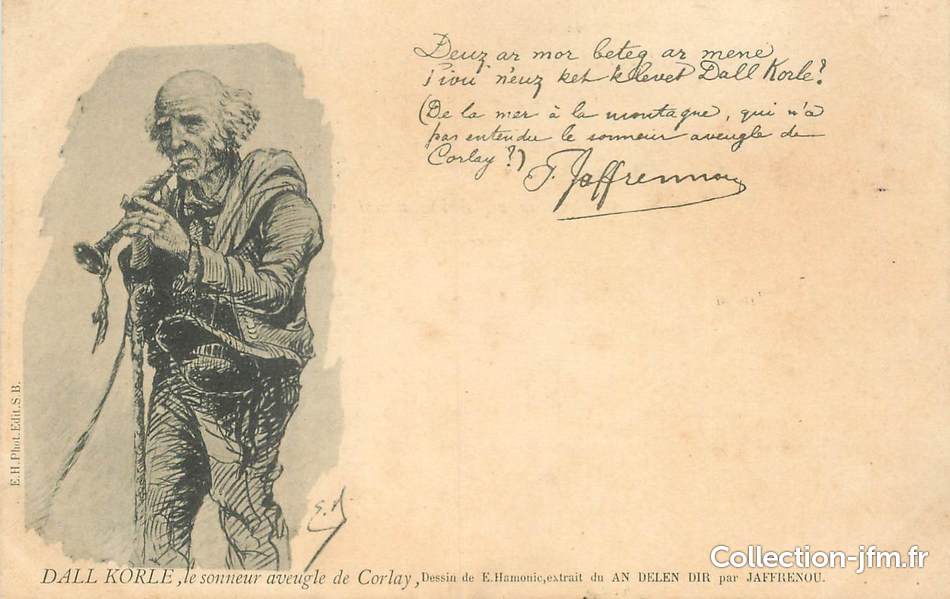 Deuz ar mor beteg ar mene
piou n'euz ket klevet Dall Korle?
(De la mer à la montagne, qui n'a
pas entendu le sonneur aveugle de
Corlay?)
T. Jaffrennou
E.H.Phot.Edit.S.B.
DALL KORLE, le sonneur aveugle de Corlay, Dessin de E.Hamonic, extrait du AN DELEN DIR par JAFFRENOU.
Collection-jfm.fr